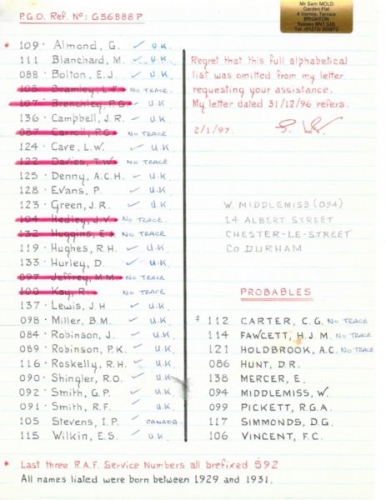 P.G.O. Ref. Nº: G36888P
Mr Sam MOLD
Garden Flat
BRIGHTON
* 109 · Almond, G. ✓ U.K.
111 · Blanchard, M. ✓ U.K.
088 · Bolton, E.J. ✓ U.K.
108 · Bramley, L.W. NO TRACE
107 · Brenchley, P.G. ✓ U.K.
136 · Campbell, J.R. ✓ U.K.
087 · Carroll, P.G. NO TRACE
124 · Cave, L.W. ✓ U.K.
122 · Davies, T.W. NO TRACE
125 · Denny, A.C.H. ✓ U.K.
128 · Evans, P. ✓ U.K.
123 · Green, J.R. ✓ U.K.
104 · Hedley, J.V. NO TRACE
132 · Huggins, E.J. NO TRACE
119 · Hughes, R.H. ✓ U.K.
133 · Hurley, D. ✓ U.K.
097 · Jeffrey, M.M. NO TRACE
100 · Kay, R. NO TRACE
137 · Lewis, J.H. ✓ U.K.
098 · Miller, B.M. ✓ U.K.
084 · Robinson, J. ✓ U.K.
089 · Robinson, P.K. ✓ U.K.
116 · Roskelly, R.H. ✓ U.K.
090 · Shingler, R.O. ✓ U.K.
092 · Smith, G.P. ✓ U.K.
091 · Smith, R.F. ✓ U.K.
105 · Stevens, I.P. ✓ CANADA
115 · Wilkin, E.S. ✓ U.K.
Regret that this full alphabetical
list was omitted from my letter
requesting your assistance.
My letter dated 31/12/96 refers.
2/1/97.
W. MIDDLEMISS (094)
14 ALBERT STREET
CHESTER-LE-STREET
CO DURHAM
PROBABLES
* 112 CARTER, C.G. NO TRACE
114 FAWCETT, H.J.M. NO TRACE
121 HOLDBROOK, A.C. NO TRACE
086 HUNT, D.R.
138 MERCER, E.
094 MIDDLEMISS, W.
099 PICKETT, R.G.A.
117 SIMMONDS, D.G.
106 VINCENT, F.C.
* Last three R.A.F. Service Numbers all prefixed 592
All names listed were born between 1929 and 1931.